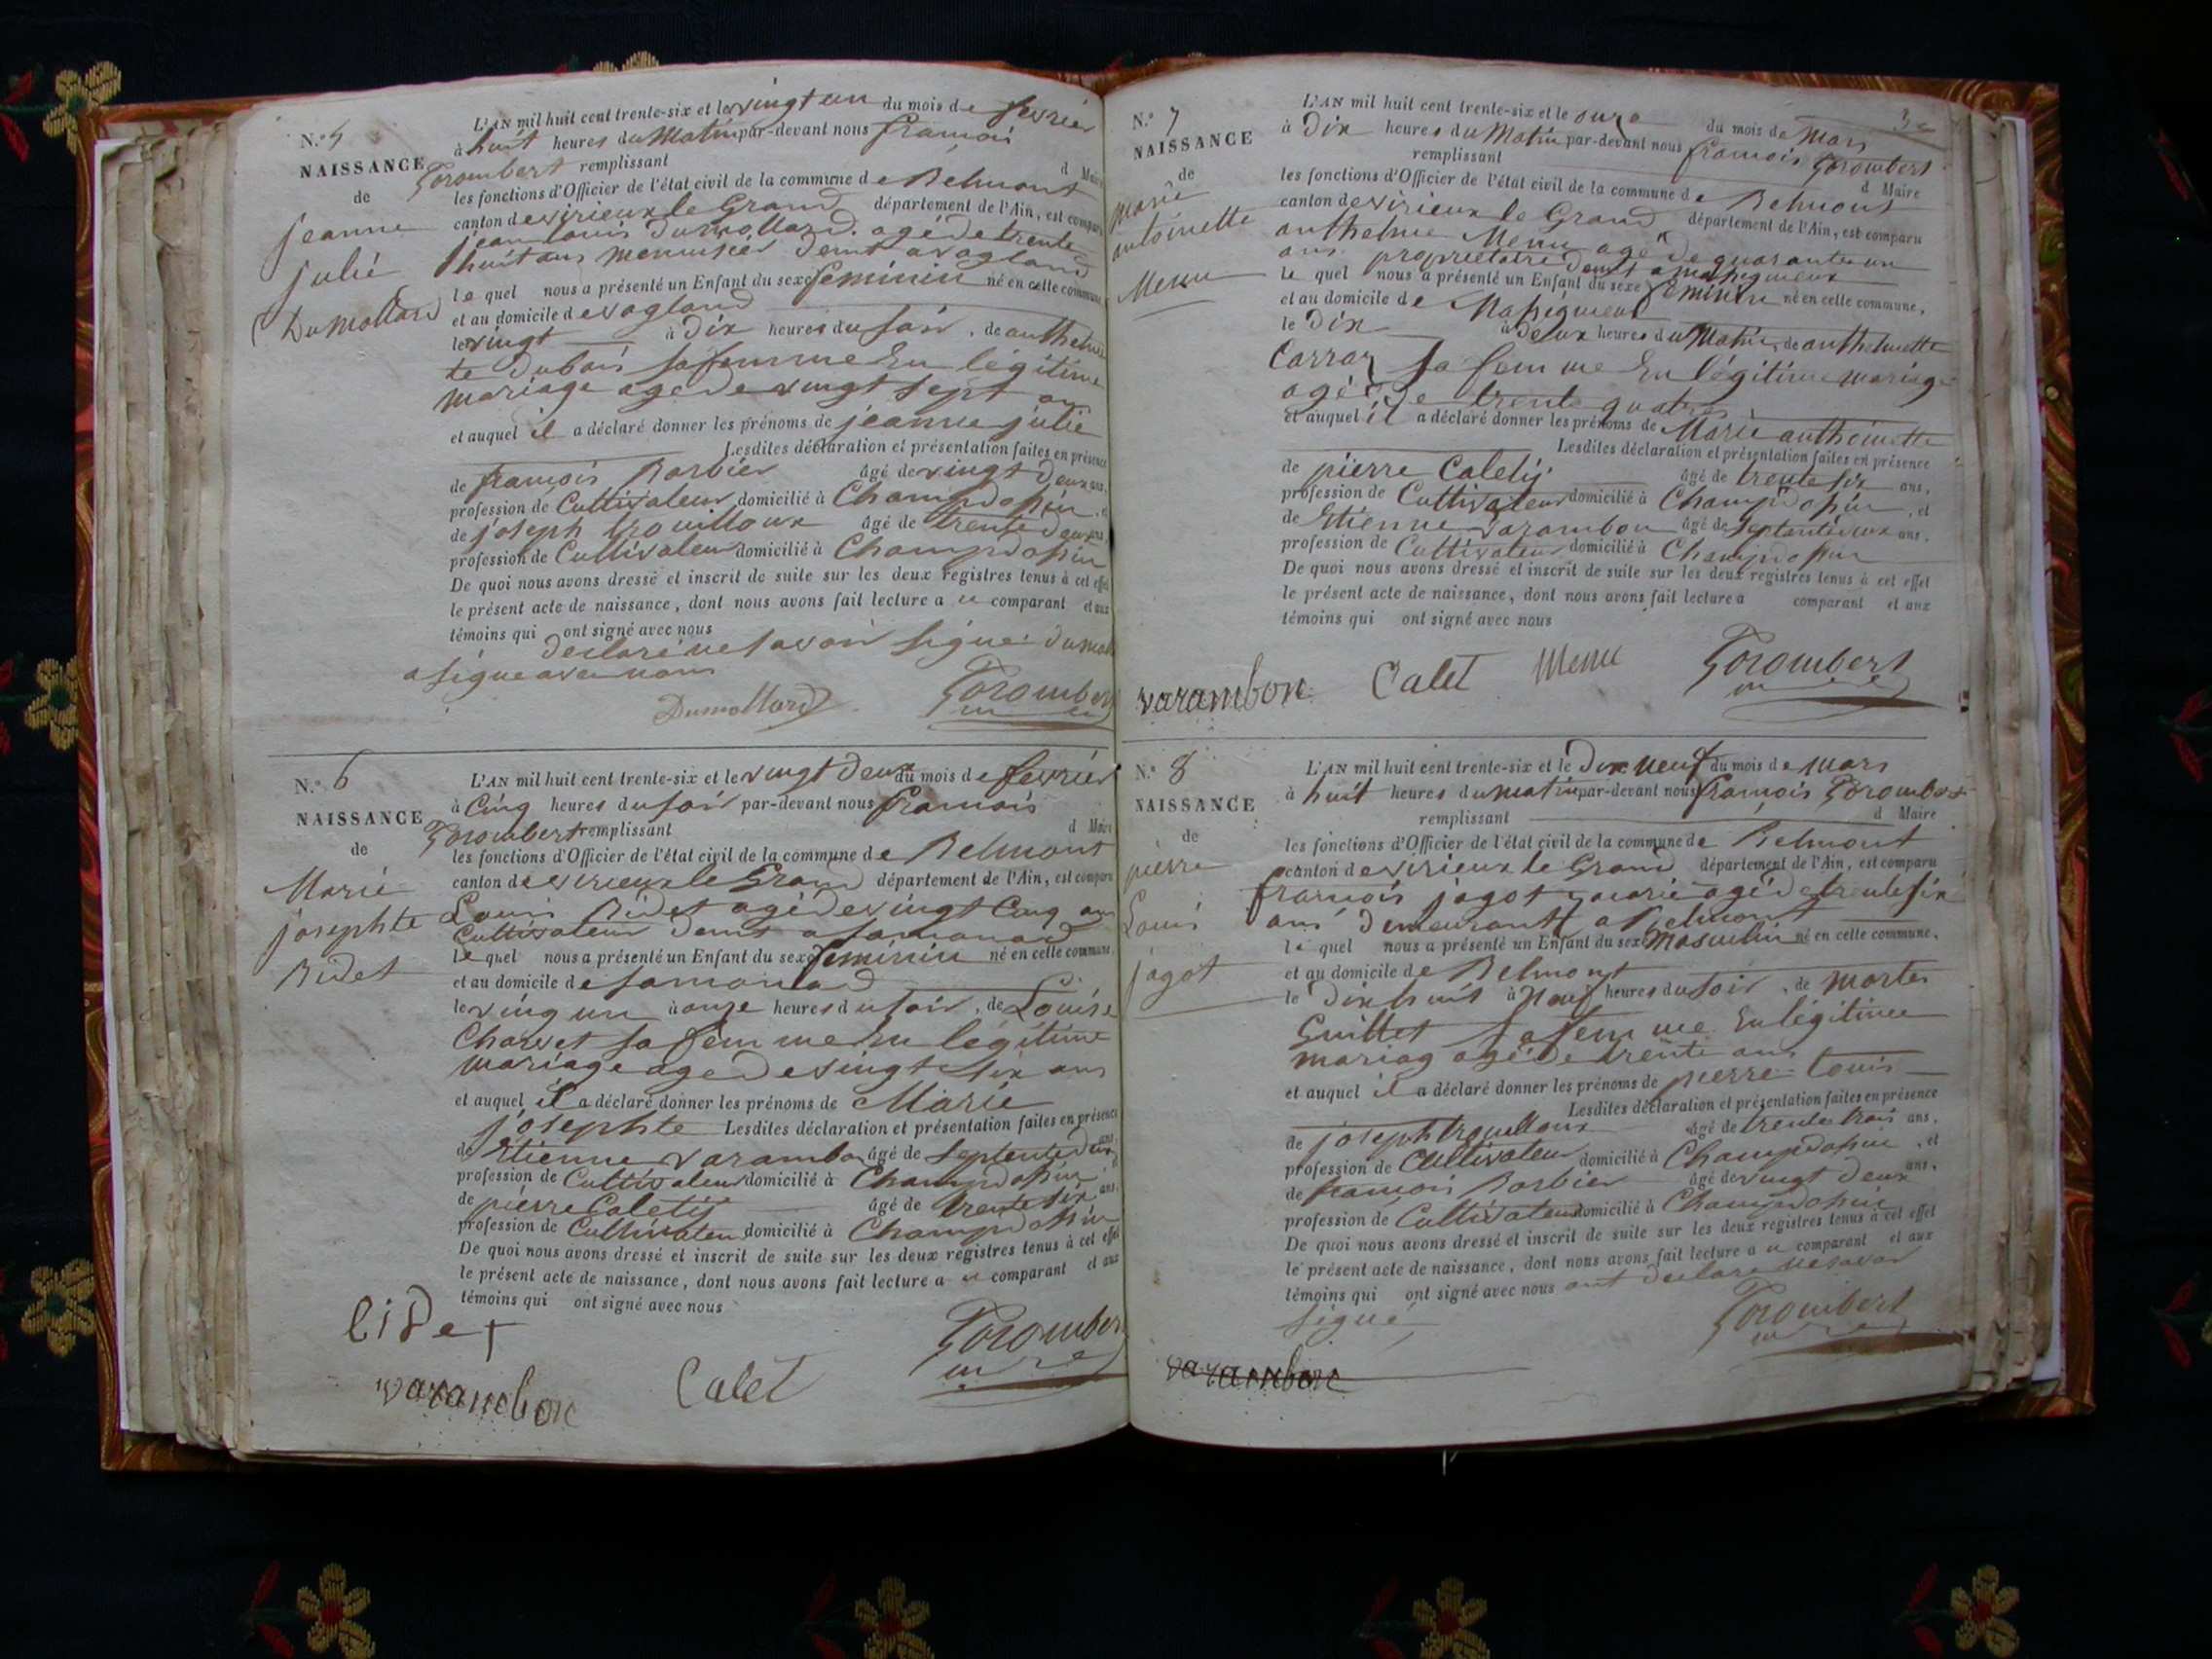 N.° 5
NAISSANCE
de
jeanne
julie
Dumollard
L'AN mil huit cent trente-six et le vingt un du mois de fevrier
à huit heures du Matin par-devant nous françois
Gorombert remplissant d Maire
les fonctions d'Officier de l'état civil de la commune de Belmont
canton de virieux le Grand département de l'Ain, est comparu
jean louis Dumollard agé de trente
huit ans menuisier demt a vogland
le quel nous a présenté un Enfant du sexe feminin né en celle commune,
et au domicile de vogland
le vingt à dix heures du soir, de anthelme
te Dubois sa femme En légitime
mariage agé de vingt sept ans
et auquel il a déclaré donner les prénoms de jeanne julie
Lesdites déclaration et présentation faites en présence
de françois Barbier âgé de vingt deux ans,
profession de Cultivateur domicilié à Champdossin, et
de joseph trouilloux âgé de trente deux ans,
profession de Cultivateur domicilié à Champdossin
De quoi nous avons dressé et inscrit de suite sur les deux registres tenus à cet effet
le présent acte de naissance, dont nous avons fait lecture a u comparant et aux
témoins qui ont signé avec nous
declaré ne savoir signé
a signé avec nous
Dumollard Gorombert
N.° 6
NAISSANCE
de
Marie
josephte
Bidet
L'AN mil huit cent trente-six et le vingt deux du mois de fevrier
à Cinq heures du soir par-devant nous françois
Gorombert remplissant d Maire
les fonctions d'Officier de l'état civil de la commune de Belmont
canton de virieux le Grand département de l'Ain, est comparu
Louis Bidet agé de vingt Cinq ans
Cultivateur demt a samonod
Le quel nous a présenté un Enfant du sexe feminin né en celle commune,
et au domicile de samonod
le ving un à onze heures du soir, de Louise
Charvet sa femme En légitime
mariage age de vingt six ans
et auquel il a déclaré donner les prénoms de Marie
josephte Lesdites déclaration et présentation faites en présence
de Etienne varambon âgé de septente deux ans,
profession de Cultivateur domicilié à Champdossin
de pierre Caletij âgé de trente six ans,
profession de Cultivateur domicilié à Champdossin
De quoi nous avons dressé et inscrit de suite sur les deux registres tenus à cet effet
le présent acte de naissance, dont nous avons fait lecture a u comparant et aux
témoins qui ont signé avec nous
Gorombert
varambon Calet
N.° 7
NAISSANCE
de
marie
antoinette
Menu
L'AN mil huit cent trente-six et le onze du mois de Mars
à Dix heures du Matin par-devant nous françois Gorombert
remplissant d Maire
les fonctions d'Officier de l'état civil de la commune de Belmont
canton de virieux le Grand département de l'Ain, est comparu
anthelme Menu agé de quarante un
ans propriétaire demt a massignieux
Le quel nous a présenté un Enfant du sexe feminin né en celle commune,
et au domicile de Massignieux
le Dix à Deux heures du Matin, de anthelmette
Carraz sa femme En légitime mariage
agée de trente quatre
et auquel il a déclaré donner les prénoms de Marie anthoinette
Lesdites déclaration et présentation faites en présence
de pierre Caletij âgé de trente six ans,
profession de Cultivateur domicilié à Champdossin, et
de Etienne varambon âgé de septante deux ans,
profession de Cultivateur domicilié à Champdossin
De quoi nous avons dressé et inscrit de suite sur les deux registres tenus à cet effet
le présent acte de naissance, dont nous avons fait lecture a comparant et aux
témoins qui ont signé avec nous
varambon Calet Menu Gorombert
N.° 8
NAISSANCE
de
pierre
Louis
jagot
L'AN mil huit cent trente-six et le Dix neuf du mois de mars
à huit heures du matin par-devant nous françois Gorombert
remplissant d Maire
les fonctions d'Officier de l'état civil de la commune de Belmont
canton de virieux le Grand département de l'Ain, est comparu
françois jagot agé de trente six
ans demeurant a Belmont
le quel nous a présenté un Enfant du sexe Masculin né en celle commune,
et au domicile de Belmont
le Dix huit à Neuf heures du soir, de
Guillet sa femme En légitime
mariag agé de trente ans
et auquel il a déclaré donner les prénoms de pierre Louis
Lesdites déclaration et présentation faites en présence
de joseph trouilloux âgé de trente trois ans,
profession de Cultivateur domicilié à Champdossin, et
de françois Barbier âgé de vingt deux ans,
profession de Cultivateur domicilié à Champdossin
De quoi nous avons dressé et inscrit de suite sur les deux registres tenus à cet effet
le présent acte de naissance, dont nous avons fait lecture a u comparant et aux
témoins qui ont signé avec nous ont declare ne savoir
signé
Gorombert
varambon